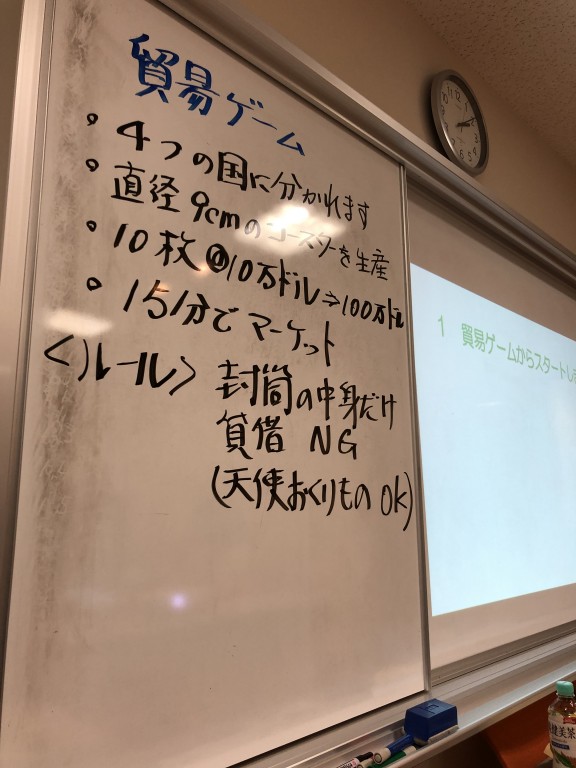 貿易ゲーム
・4つの国に分かれます
・直径9cmのコースターを生産
・10枚@10万ドル⇒100万ドル
・15分でマーケット
<ルール> 封筒の中身だけ
貸借 NG
(天使おくりもの OK)
1 貿易ゲームからスタートし
健美茶